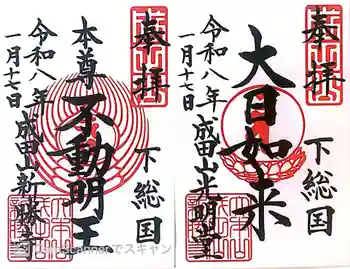 奉拝
下総国
大日如来
成田山光明堂
令和八年
一月十七日
奉拝
下総国
本尊
不動明王
成田山新勝寺
令和八年
一月十七日
でスキャン